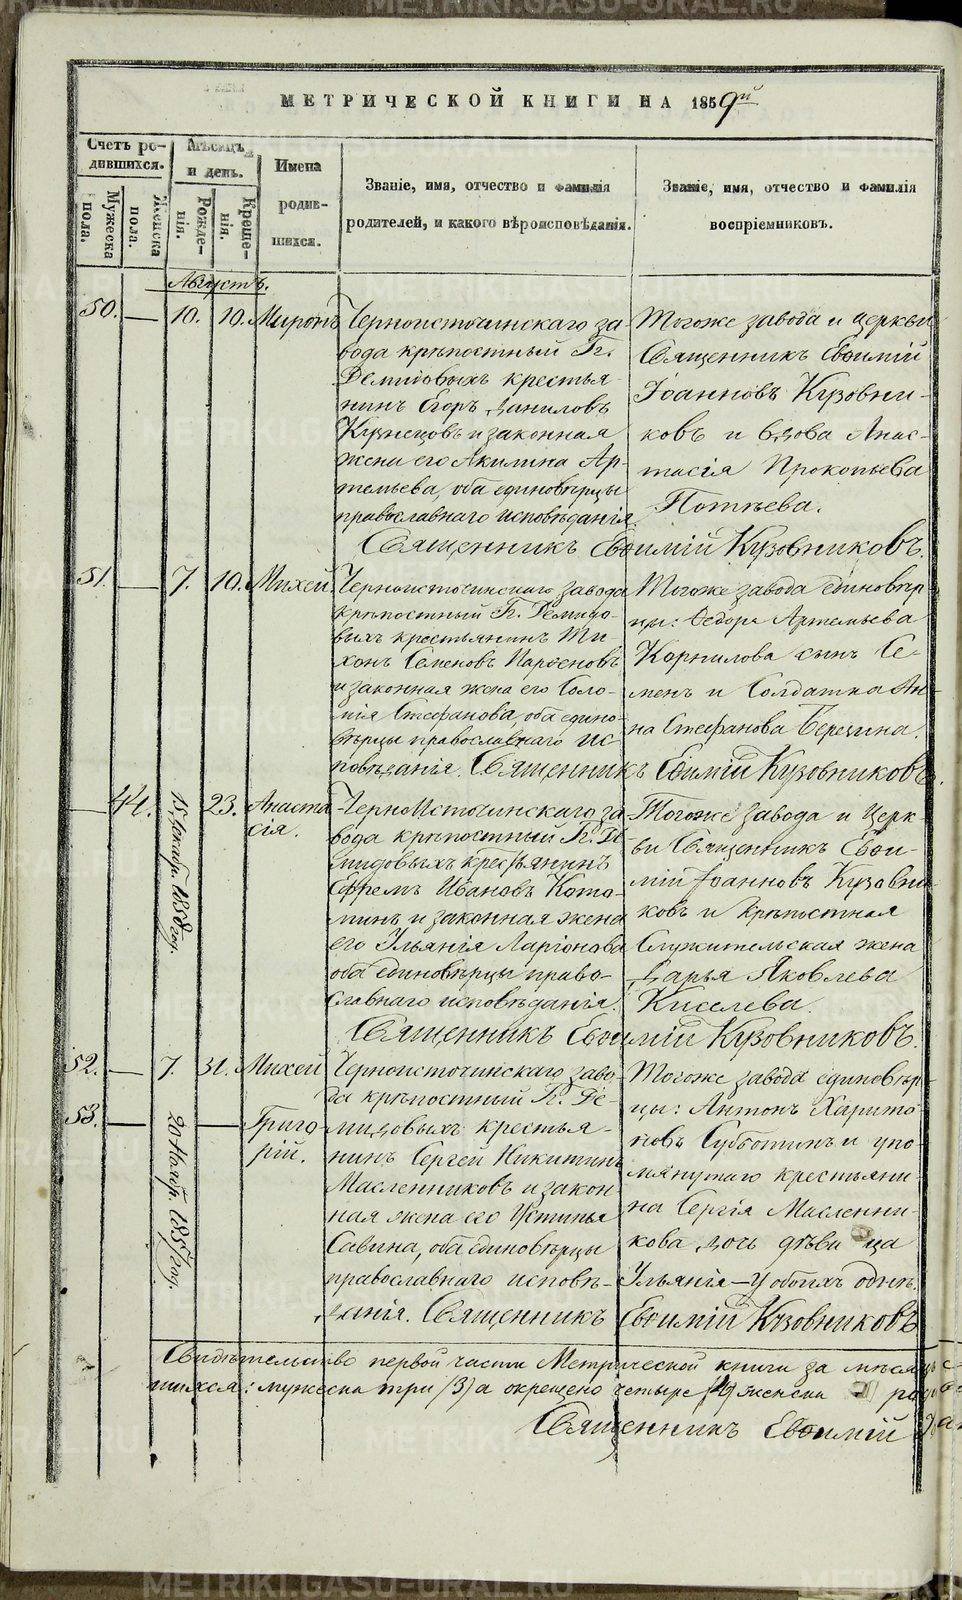 МЕТРИЧЕСКОЙ КНИГИ НА 1859й
Счетъ ро-
дившихся.
Мужеска
пола.
Женска
пола.
Мѣсяцъ
и день.
Рожде-
нія.
Креще-
нія.
Имена
родив-
шихся.
Званіе, имя, отчество и фамилія
родителей, и какого вѣроисповѣданія.
Званіе, имя, отчество и фамилія
воспріемниковъ.
Августъ.
50. — 10. 10. Миронъ
Черноисточинскаго за-
вода крѣпостный Гг.
Демидовыхъ крестья-
нинъ Егоръ Даниловъ
Кузнецовъ и законная
жена его Акилина Ар-
темьева, оба единовѣрцы
православнаго исповѣданія.
Тогоже завода и церкви
Священникъ Евѳимій
Іоанновъ Кузовни-
ковъ и вдова Анас-
тасія Прокопьева
Потѣева.
Священникъ Евѳимій Кузовниковъ.
51. — 7. 10. Михей.
Черноисточинскаго завода
крѣпостный Гг. Демидо-
выхъ крестьянинъ Ти-
хонъ Семеновъ Парѳеновъ
и законная жена его Соло-
мія Стефанова, оба едино-
вѣрцы православнаго ис-
повѣданія.
Тогоже завода единовѣр-
цы: Ѳедора Артемьева
Корнилова сынъ Се-
менъ и Солдатка Ан-
на Стефанова Березина.
Священникъ Евѳимій Кузовниковъ.
— 44. 15 Декабр. 1858 год. 23. Анаста
сія.
Черноисточинскаго за
вода крѣпостный Гг. Де
мидовыхъ крестьянинъ
Ефремъ Ивановъ Кото-
минъ и законная жена
его Ульянія Ларіонова
оба единовѣрцы право-
славнаго исповѣданія.
Тогоже завода и Церк-
ви Священникъ Евѳи-
мій Іоанновъ Кузовни-
ковъ и крѣпостная
Служительская жена
Дарья Яковлева
Киселева.
Священникъ Евѳимій Кузовниковъ.
52. — 7. 31. Михей
53. — 20 Нояб. 1857 год. — Григо
рій.
Черноисточинскаго заво-
да крѣпостный Гг. Де-
мидовыхъ крестья-
нинъ Сергей Никитинъ
Масленниковъ и закон-
ная жена его Устинья
Савина, оба единовѣрцы
православнаго исповѣ-
данія.
Тогоже завода единовѣр-
цы: Антонъ Харито-
новъ Субботинъ и упо
мянутаго крестьяни-
на Сергія Масленни-
кова дочь дѣвица
Ульянія — У обоихъ однѣ.
Священникъ Евѳимій Кузовниковъ
Свидѣтельство первой части Метрической книги за мѣсяцъ
шихся: мужеска три (3) а окрещено четыре (4) женска
Священникъ Евѳимій
METRIKI.GASU-URAL.RU